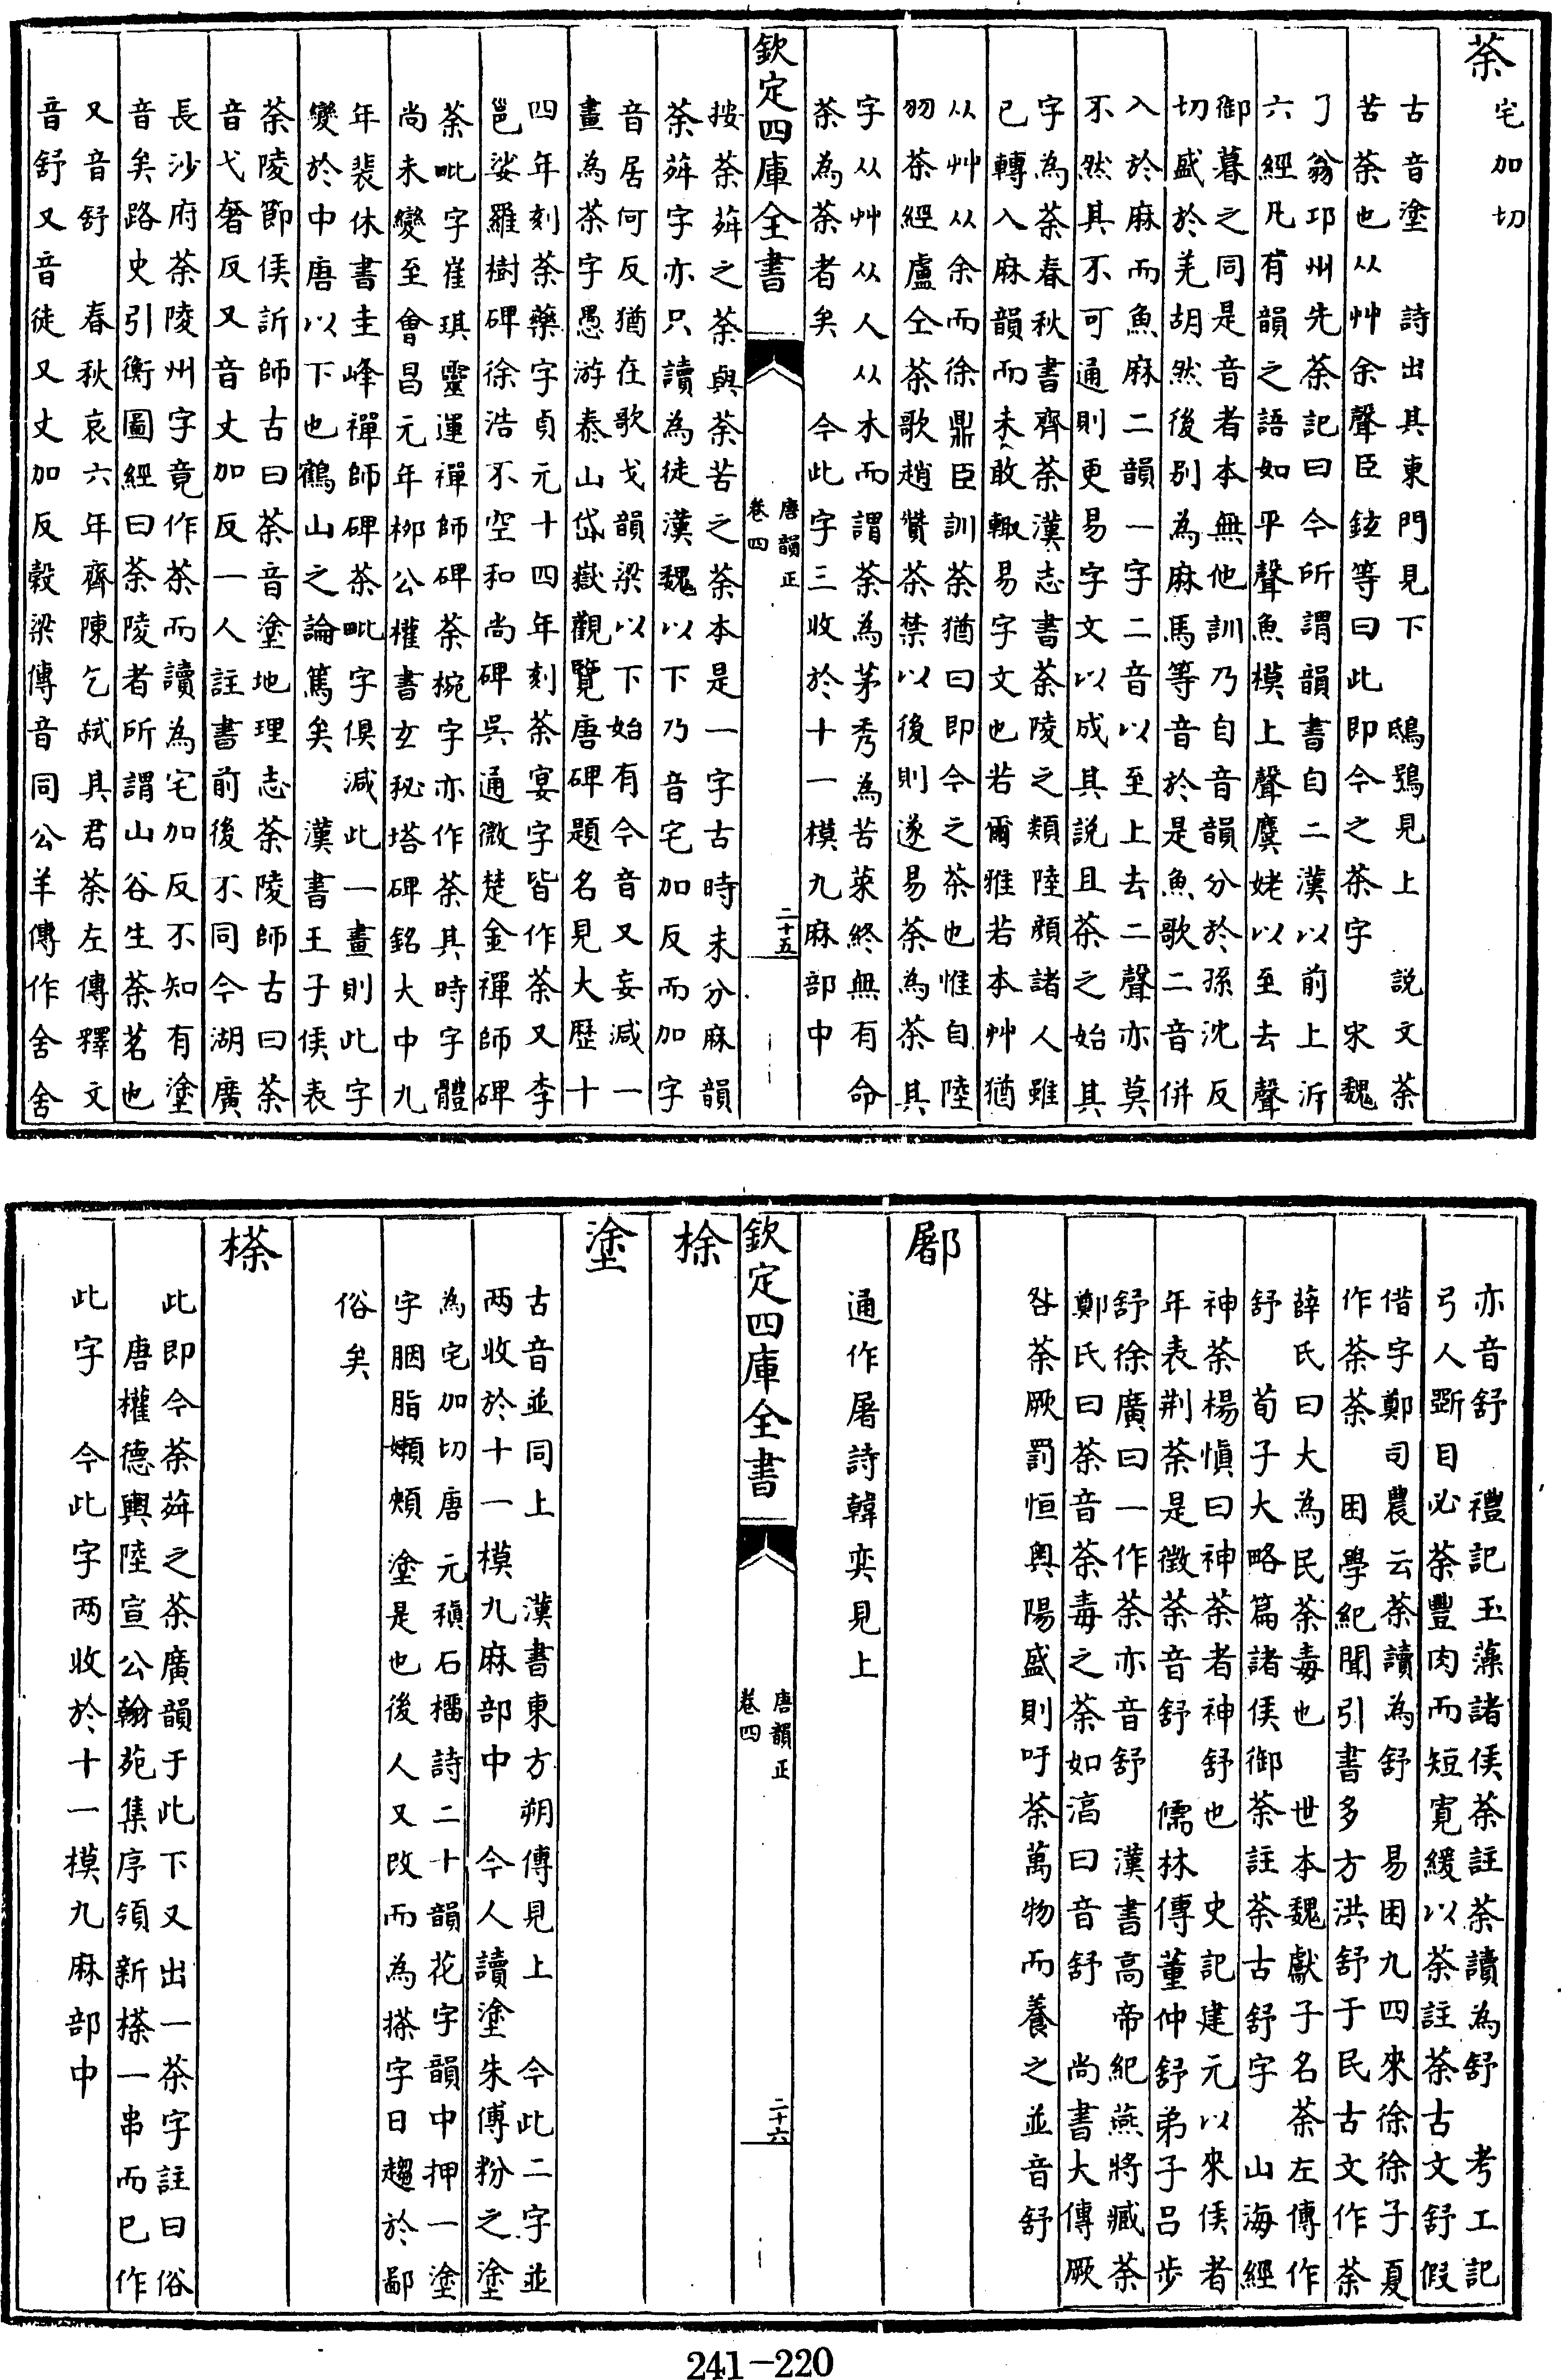 荼 宅加切
古音塗 詩出其東門見下 鴟鴞見上 説文荼
苦荼也从艸余聲臣鉉等曰此即今之茶字 宋魏
了翁邛州先茶記曰今所謂韻書自二漢以前上泝
六經凡有韻之語如平聲魚模上聲麌姥以至去聲
御暮之同是音者本無他訓乃自音韻分於孫沈反
切盛於羌胡然後别為麻馬等音於是魚歌二音併
入於麻而魚麻二韻一字二音以至上去二聲亦莫
不然其不可通則更易字文以成其説且茶之始其
字為荼春秋書齊荼漢志書荼陵之類陸顔諸人雖
已轉入麻韻而未敢輙易字文也若爾雅若本艸猶
从艸从余而徐鼎臣訓荼猶曰即今之茶也惟自陸
羽茶經盧仝茶歌趙贊茶禁以後則遂易荼為茶其
字从艸从人从木而謂荼為茅秀為苦菜終無有命
荼為茶者矣 今此字三收於十一模九麻部中
欽定四庫全書
唐韻正
卷四
二十五
按荼荈之荼與荼苦之荼本是一字古時未分麻韻
荼荈字亦只讀為徒漢魏以下乃音宅加反而加字
音居何反猶在歌戈韻梁以下始有今音又妄減一
畫為茶字愚游泰山岱嶽觀覽唐碑題名見大歴十
四年刻荼藥字貞元十四年刻荼宴字皆作荼又李
邕娑羅樹碑徐浩不空和尚碑吳通微楚金禪師碑
荼毗字崔琪靈運禪師碑荼椀字亦作荼其時字體
尚未變至會昌元年柳公權書玄秘塔碑銘大中九
年裴休書圭峰禪師碑茶毗字俱減此一畫則此字
變於中唐以下也鶴山之論篤矣 漢書王子侯表
荼陵節侯訢師古曰荼音塗地理志荼陵師古曰荼
音弋奢反又音丈加反一人註書前後不同今湖廣
長沙府茶陵州字竟作茶而讀為宅加反不知有塗
音矣路史引衡圖經曰茶陵者所謂山谷生茶茗也
又音舒 春秋哀六年齊陳乞弒其君荼左傳釋文
音舒又音徒又丈加反榖梁傳音同公羊傳作舍舍
亦音舒 禮記玉藻諸侯荼註荼讀為舒 考工記
弓人斵目必荼豐肉而短寛緩以荼註荼古文舒假
借字鄭司農云荼讀為舒 易困九四來徐徐子夏
作荼荼 困學紀聞引書多方洪舒于民古文作荼
薛氏曰大為民荼毒也 世本魏獻子名荼左傳作
舒 荀子大略篇諸侯御荼註荼古舒字 山海經
神荼楊慎曰神荼者神舒也 史記建元以來侯者
年表荆荼是徵荼音舒 儒林傳董仲舒弟子吕步
舒徐廣曰一作荼亦音舒 漢書高帝紀燕將臧荼
鄭氏曰荼音荼毒之荼如淳曰音舒 尚書大傳厥
咎荼厥罰恒奥陽盛則吁荼萬物而養之並音舒
鄌
通作屠詩韓奕見上
欽定四庫全書
唐韻正
卷四
二十六
捈
塗
古音並同上 漢書東方朔傳見上 今此二字並
两收於十一模九麻部中 今人讀塗朱傅粉之塗
為宅加切唐元稹石榴詩二十韻花字韻中押一塗
字胭脂嬾頰塗是也後人又改而為搽字日趨於鄙
俗矣
㯶
此即今茶荈之茶廣韻于此下又出一茶字註曰俗
唐權德輿陸宣公翰苑集序領新㯶一串而已作
此字 今此字两收於十一模九麻部中
241-220